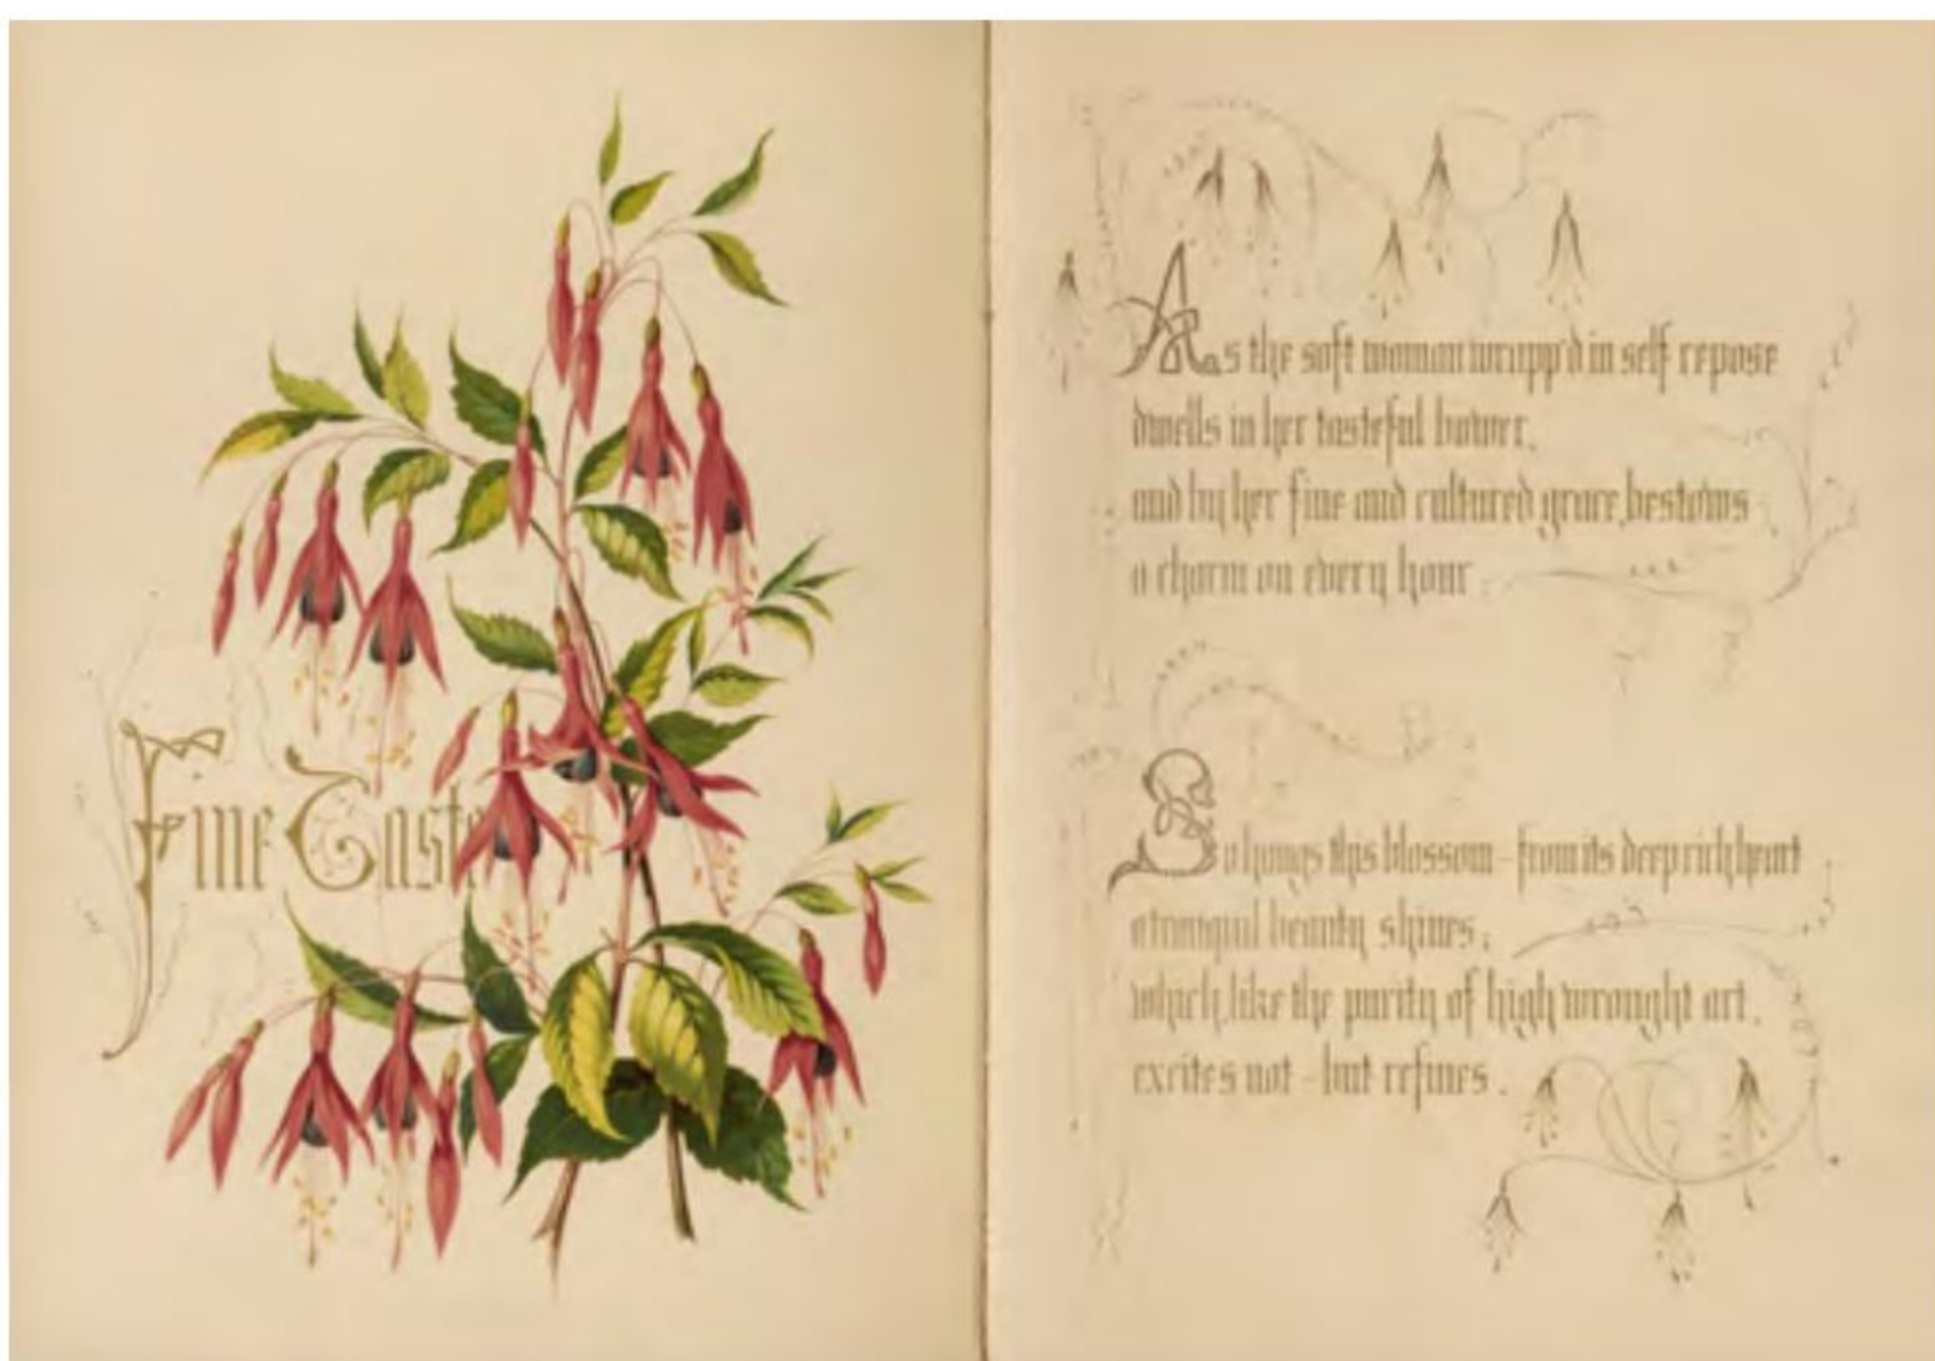 Fine Taste
As the soft woman wrapp'd in self repose
dwells in her tasteful bower,
and by her fine and cultured grace, bestows
a charm on every hour;
So hangs this blossom – from its deep rich heart
a tranquil beauty shines,
which, like the purity of high wrought art,
excites not – but refines.